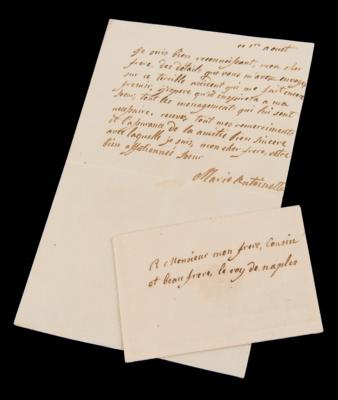 ce 1er aoust
je suis bien reconnoissant, mon cher
frere des détails que vous m'avez envoyés
sur ce terrible accident qui me fait encore
fremir, j'espere qu'il inspirera a ma
Soeur, tout les menagement qui lui sont
necessaire, recevez tout mes remerciments
de l'assurance de la amitié bien sincere
avec laquelle je suis, mon cher frere, votre
bien affectionnée Soeur
Marie Antoinette
A Monsieur mon frere, Cousin
et beau frere, le roy de naples